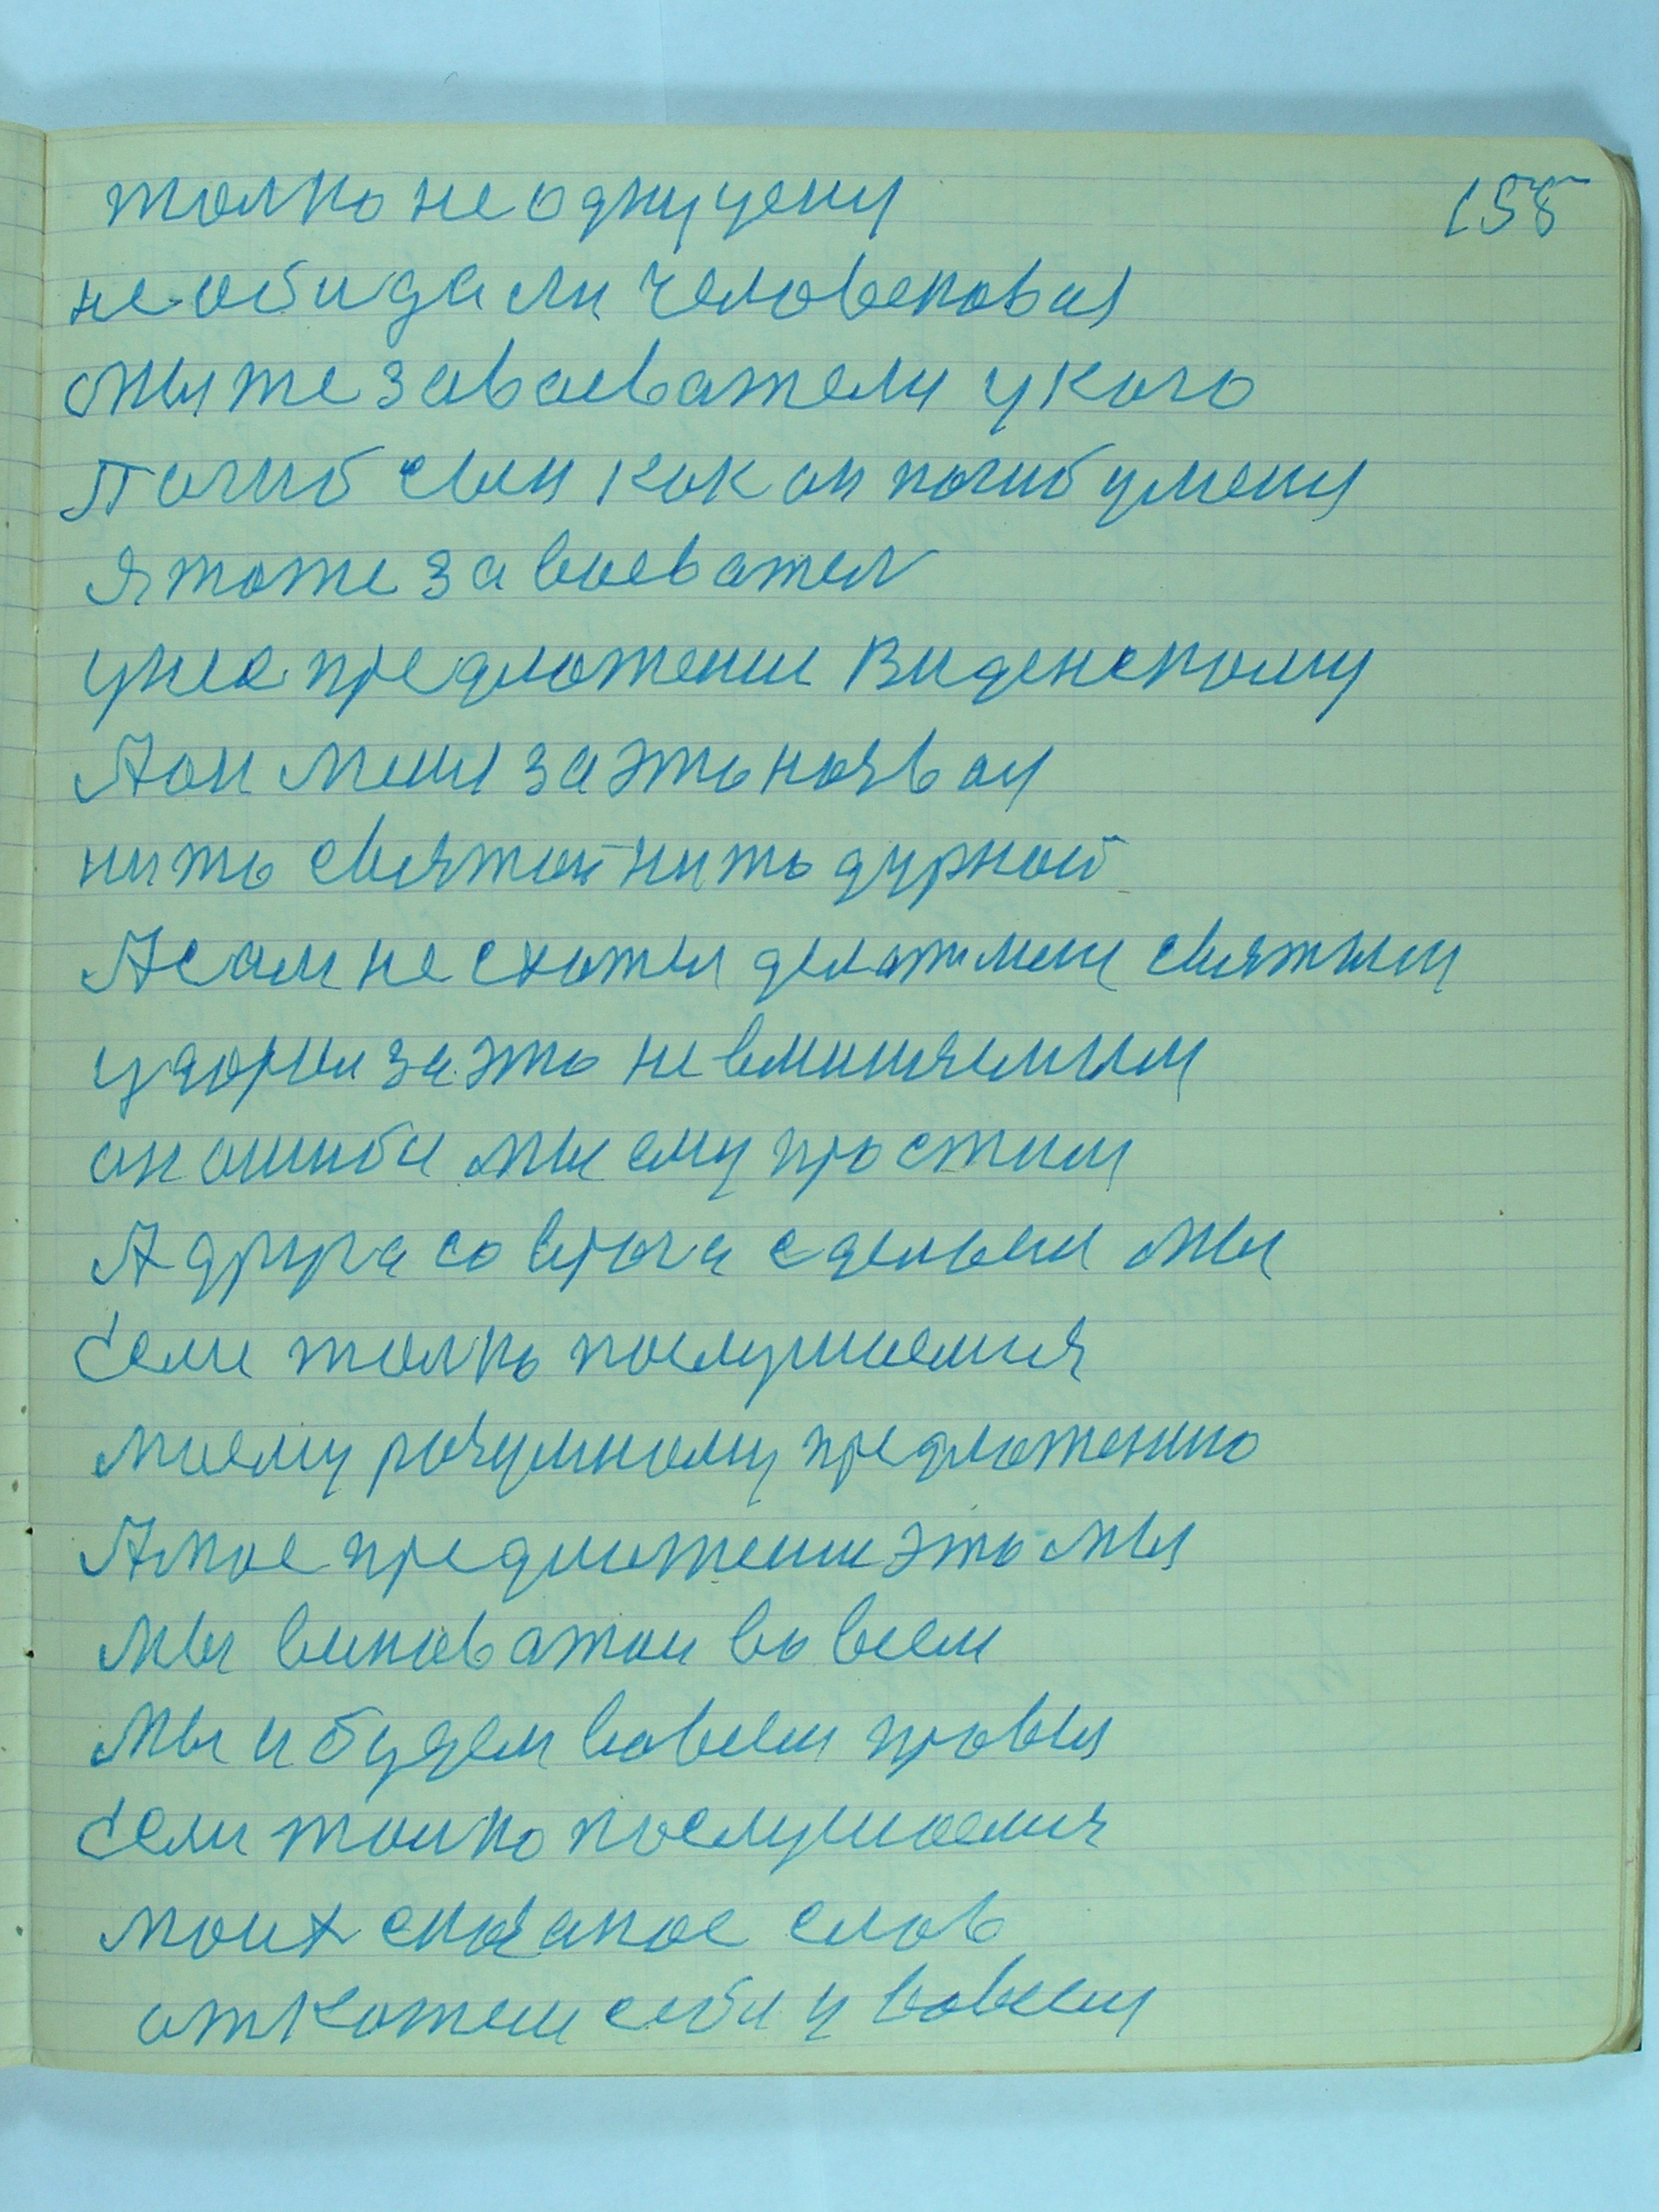 толко не одну цену 158
не обидали человековая
мы же завоеватели у кого
Погиб сын как он погиб у меня
я тоже завоевател
у нея предложение Виденскому
А он меня за это назвал
ни то святой ни то дурной
А сам не схотел делат меня святым
за это не вминяемым
он ошибся мы ему простим
А друга со врага сделаем мы
Если толко послушаемся
моему разумному предложению
А мое предложение это мы
мы виноватои во всем
мы и будем во всем правыя
Если толко послушаемся
моих сказаное слов
откажем себя у во всем